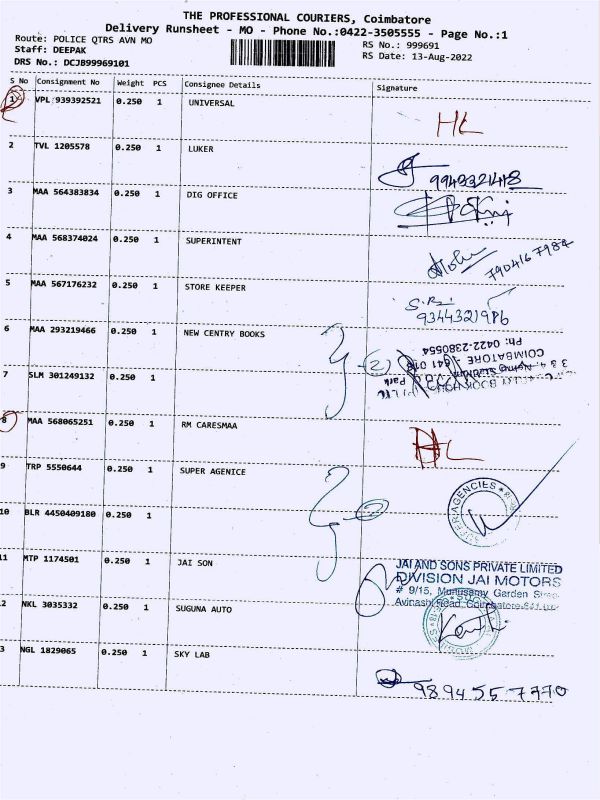 THE PROFESSIONAL COURIERS, Coimbatore
Delivery Runsheet - MO - Phone No.:0422-3505555 - Page No.:1
Route: POLICE QTRS AVN MO
RS No.: 999691
Staff: DEEPAK
RS Date: 13-Aug-2022
DRS No.: DCJB99969101
S No Consignment No Weight PCS Consignee Details Signature
1 VPL 939392521 0.250 1 UNIVERSAL
HL
2 TVL 1205578 0.250 1 LUKER
9943321418
3 MAA 564383834 0.250 1 DIG OFFICE
4 MAA 568374024 0.250 1 SUPERINTENT
7904167984
5 MAA 567176232 0.250 1 STORE KEEPER
9344321986
6 MAA 293219466 0.250 1 NEW CENTRY BOOKS
2
Ph: 0422-2380554
COIMBATORE - 641 018
7 SLM 301249132 0.250 1
8 MAA 568065251 0.250 1 RM CARESMAA
HL
9 TRP 5550644 0.250 1 SUPER AGENICE
SUPER AGENCIES
10 BLR 4450409180 0.250 1
2
11 MTP 1174501 0.250 1 JAI SON
JAI AND SONS PRIVATE LIMITED
DIVISION JAI MOTORS
# 9/15, Munusamy Garden
Avinashi Road, Coimbatore
2 NKL 3035332 0.250 1 SUGUNA AUTO
3 NGL 1829065 0.250 1 SKY LAB
9894557770